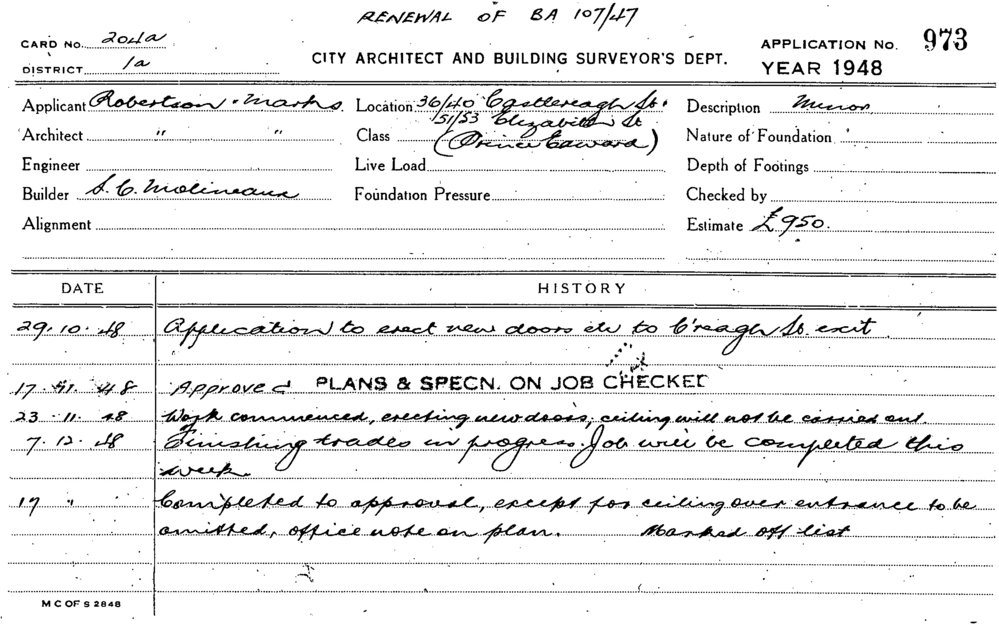 RENEWAL OF BA 107/47
CARD No. 204a
DISTRICT 1a
CITY ARCHITECT AND BUILDING SURVEYOR'S DEPT.
APPLICATION No. 973
YEAR 1948
Applicant Robertson & Marks Location 36/40 Castlereagh St. Description Minor
51/53 Elizabeth St
Architect " " Class (Prince Edward) Nature of Foundation
Engineer Live Load Depth of Footings
Builder S. C. Molineaux Foundation Pressure Checked by
Alignment Estimate £950.
DATE HISTORY
29.10.48 Application to erect new doors etc to C'reagh St. exit.
17.11.48 Approved PLANS & SPECN. ON JOB CHECKED
23.11.48 Work commenced, erecting new doors, ceiling will not be carried out.
7.12.48 Finishing trades in progress. Job will be completed this
week.
17 " " Completed to approval, except for ceiling over entrance to be
omitted, office note on plan. Marked off list
M C OF S 2848